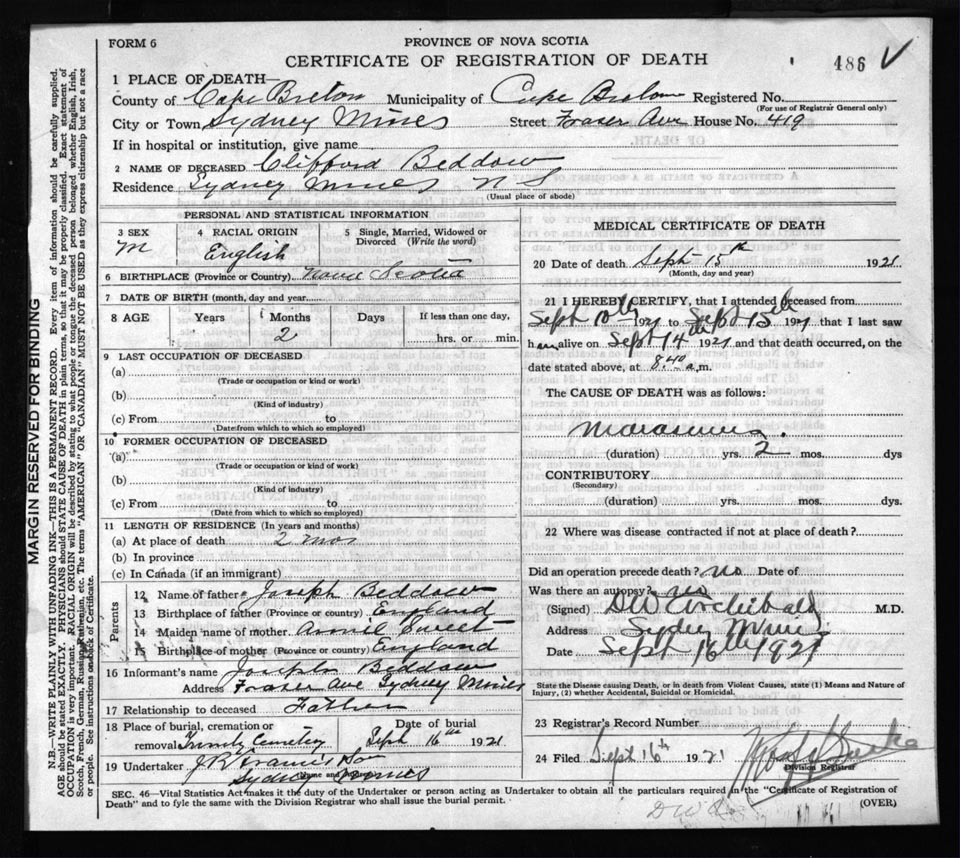 FORM 6
PROVINCE OF NOVA SCOTIA
CERTIFICATE OF REGISTRATION OF DEATH
486
1 PLACE OF DEATH—
County of Cape Breton Municipality of Cape Breton Registered No.
(For use of Registrar General only)
City or Town Sydney Mines Street Fraser Ave House No. 419
If in hospital or institution, give name
2 NAME OF DECEASED Clifford Beddow
Residence Sydney Mines N S
(Usual place of abode)
PERSONAL AND STATISTICAL INFORMATION
3 SEX 4 RACIAL ORIGIN 5 Single, Married, Widowed or
Divorced (Write the word)
M English
6 BIRTHPLACE (Province or Country) Nova Scotia
7 DATE OF BIRTH (month, day and year)
8 AGE Years Months Days If less than one day,
2 hrs. or min.
9 LAST OCCUPATION OF DECEASED
(a)
(Trade or occupation or kind or work)
(b)
(Kind of industry)
(c) From to
(Date from which to which so employed)
10 FORMER OCCUPATION OF DECEASED
(a)
(Trade or occupation or kind or work)
(b)
(Kind of industry)
(c) From to
(Date from which to which so employed)
11 LENGTH OF RESIDENCE (In years and months)
(a) At place of death 2 mos
(b) In province
(c) In Canada (if an immigrant)
Parents
12 Name of father Joseph Beddow
13 Birthplace of father (Province or country) England
14 Maiden name of mother Annie Sweet
15 Birthplace of mother (Province or country) England
16 Informant's name Joseph Beddow
Address Fraser Ave Sydney Mines
17 Relationship to deceased Father
18 Place of burial, cremation or Date of burial
removal Trinity Cemetery Sept 16th 1921
19 Undertaker
(Name and address)
Sydney Mines
MEDICAL CERTIFICATE OF DEATH
20 Date of death Sept 15th 1921
(Month, day and year)
21 I HEREBY CERTIFY, that I attended deceased from
Sept 10th 1921 to Sept 15th 1921 that I last saw
h im alive on Sept 14th 1921 and that death occurred, on the
date stated above, at 8.40 a.m.
The CAUSE OF DEATH was as follows:
Marasmus
(duration) yrs. 2 mos. dys
CONTRIBUTORY
(Secondary)
(duration) yrs. mos. dys.
22 Where was disease contracted if not at place of death?
Did an operation precede death? no Date of
Was there an autopsy? no
(Signed) DW Archibald M.D.
Address Sydney Mines
Date Sept 16th 1921
State the Disease causing Death, or in death from Violent Causes, state (1) Means and Nature of
Injury, (2) whether Accidental, Suicidal or Homicidal.
23 Registrar's Record Number
24 Filed Sept 16th 1921
Division Registrar
SEC. 46—Vital Statistics Act makes it the duty of the Undertaker or person acting as Undertaker to obtain all the particulars required in the "Certificate of Registration of
Death" and to fyle the same with the Division Registrar who shall issue the burial permit.
(OVER)
MARGIN RESERVED FOR BINDING
N.B.—WRITE PLAINLY WITH UNFADING INK—THIS IS A PERMANENT RECORD. Every item of information should be carefully supplied.
AGE should be stated EXACTLY. PHYSICIANS should STATE CAUSE OF DEATH in plain terms, so that it may be properly classified. Exact statement of
OCCUPATION is very important. RACIAL ORIGIN will be described by stating to what people or tongue the deceased person belonged whether English, Irish,
Scotch, French, German, Russian, Ruthenian, etc. The terms "AMERICAN" OR "CANADIAN" MUST NOT BE USED as they express citizenship but not a race
or people. See instructions on back of Certificate.